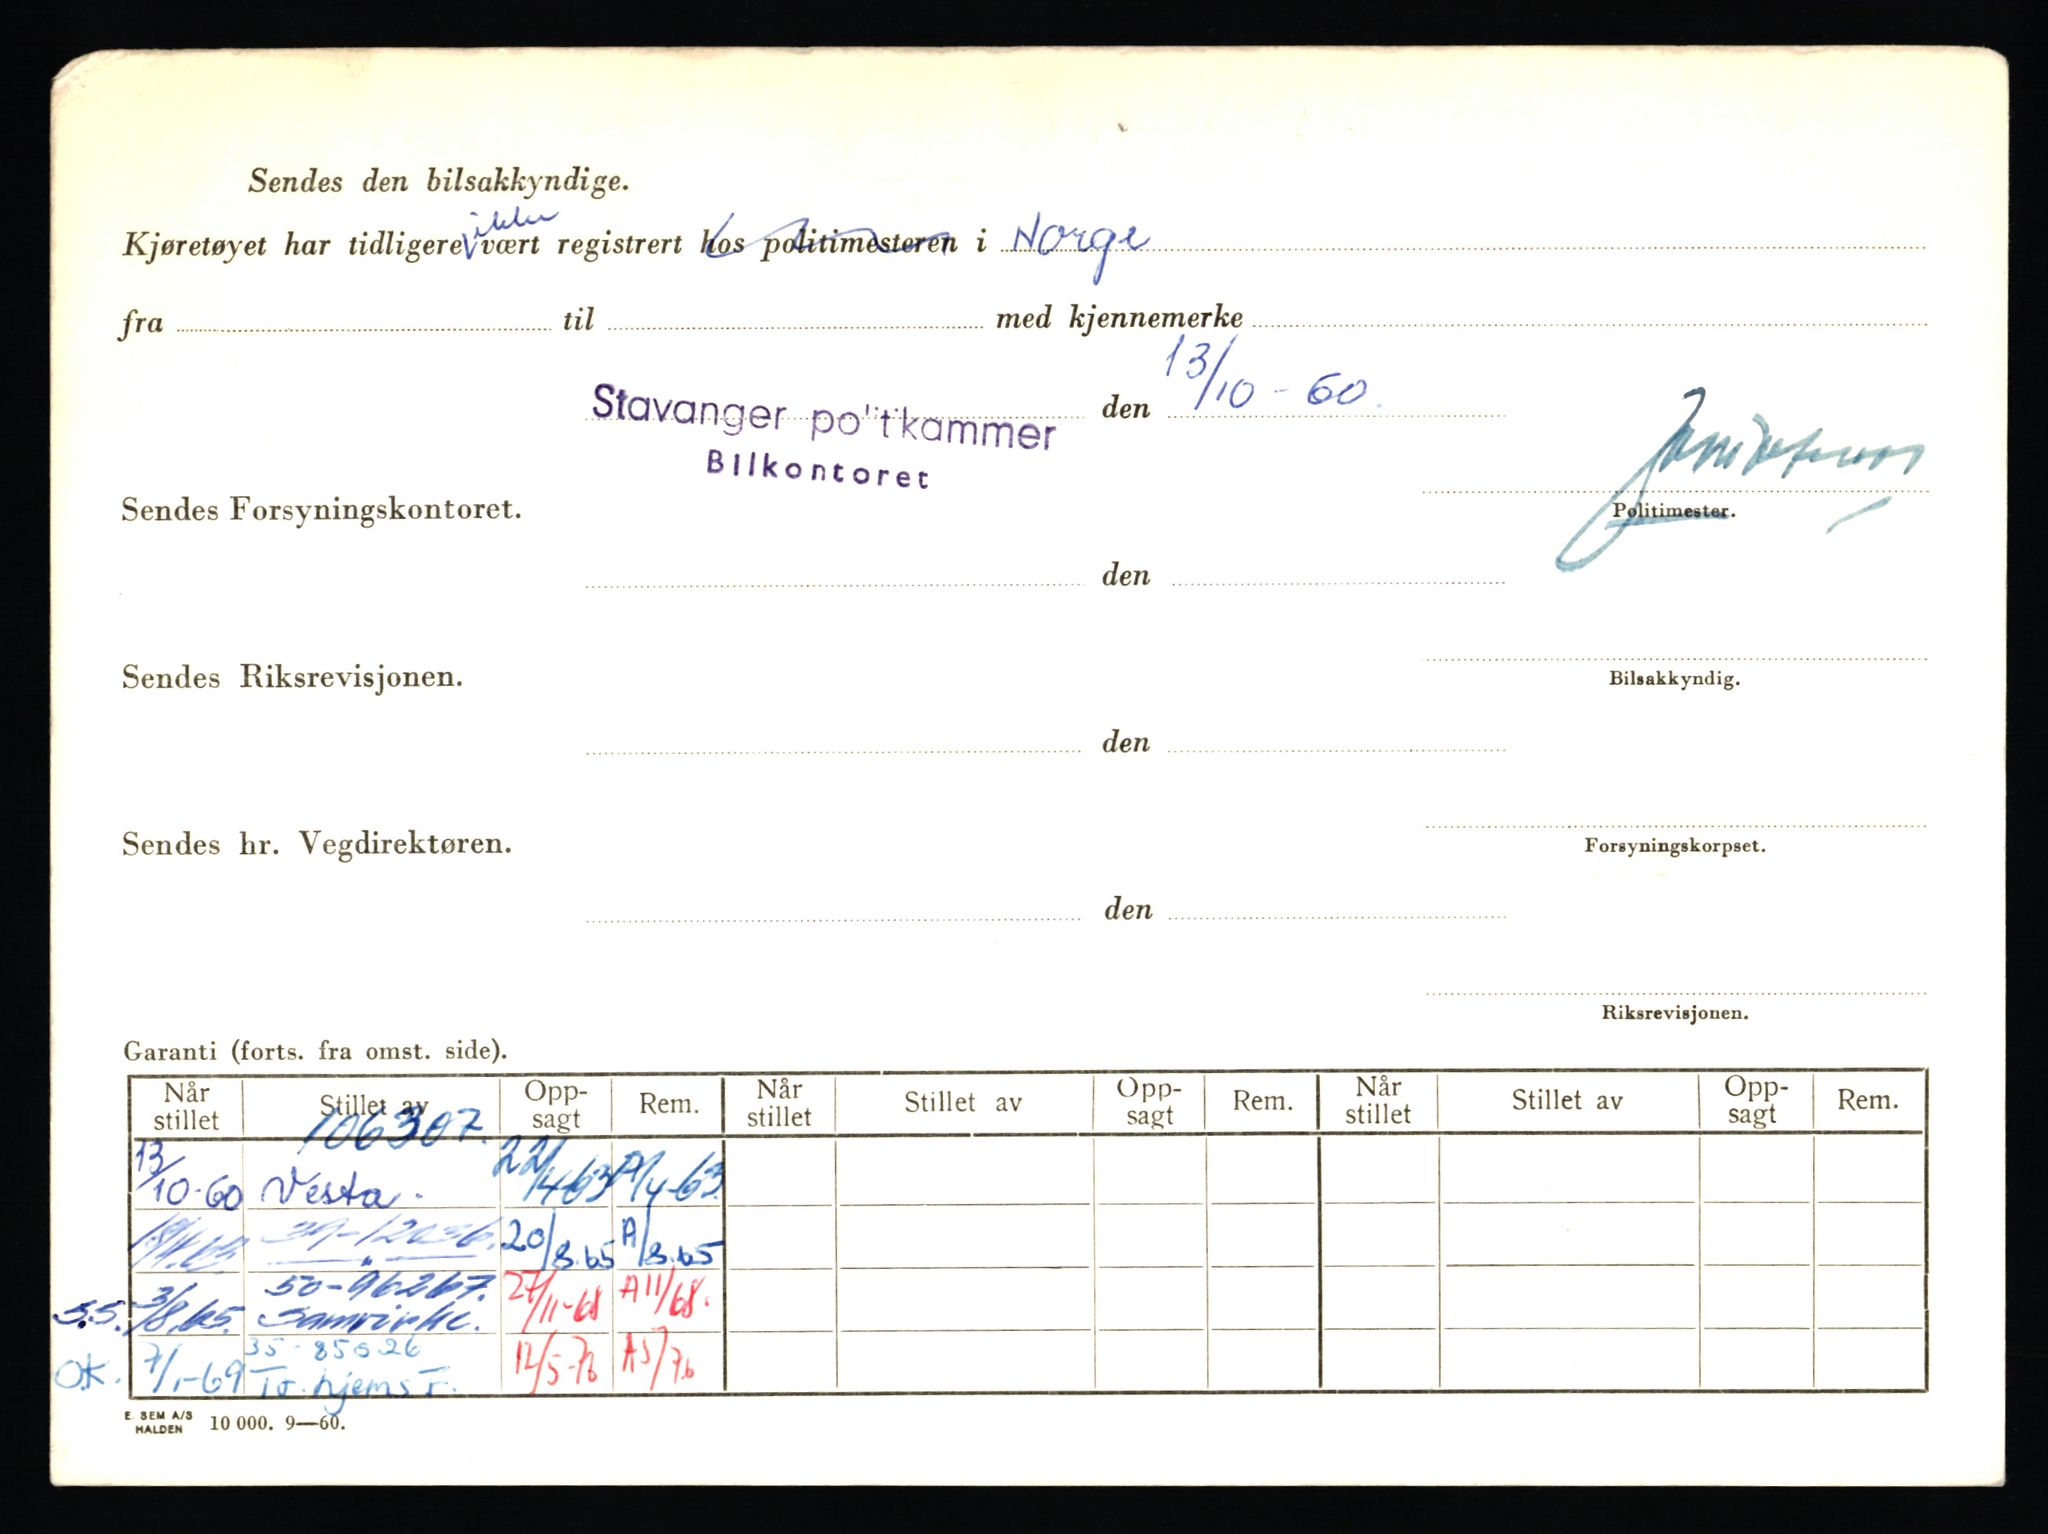 Sendes den bilsakkyndige.
ikke
Kjøretøyet har tidligere vært registrert hos politimesteren i Norge
fra til med kjennemerke
Stavanger politikammer den 13/10-60.
Bilkontoret
Sendes Forsyningskontoret.
Politimester.
den
Sendes Riksrevisjonen.
Bilsakkyndig.
den
Sendes hr. Vegdirektøren.
Forsyningskorpset.
den
Riksrevisjonen.
Garanti (forts. fra omst. side).
Når stillet Stillet av Opp-sagt Rem. Når stillet Stillet av Opp-sagt Rem. Når stillet Stillet av Opp-sagt Rem.
106307.
13/10-60 Vesta. 22/4-63 A/4-63.
39-12036. 20/8.65 A/8.65
50-96267.
S.S. 3/8.65. Samvirke. 27/11-68 A11/68.
35-85026
O.K. 7/1-69 Tr.hjems F. 12/5-76 A5/76
E. SEM A/S HALDEN 10 000. 9—60.